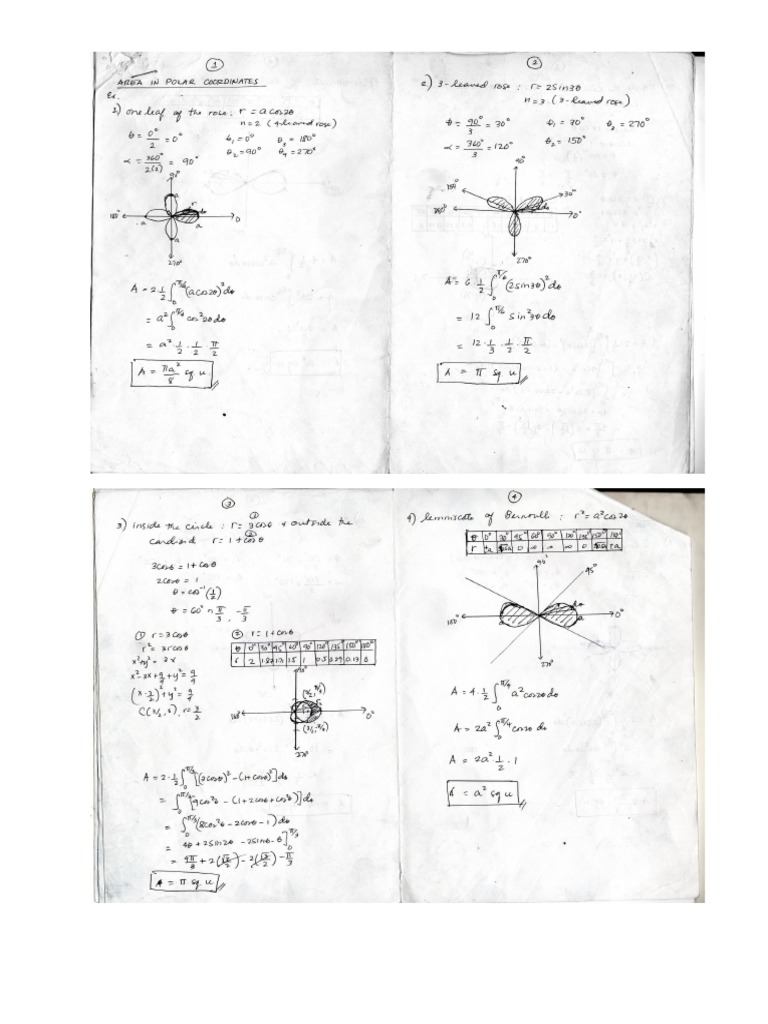 1
AREA IN POLAR COORDINATES
Ex.
1) one leaf of the rose: r = a cos2θ
n = 2 (4-leaved rose)
θ = 0°/2 = 0°
θ₁ = 0° θ₃ = 180°
α = 360°/2(2) = 90°
θ₂ = 90° θ₄ = 270°
90°
a
r
dθ
180° a a 0
a
270°
A = 2·1/2 ∫₀^π/4 (a cos2θ)² dθ
= a² ∫₀^π/4 cos²2θ dθ
= a² · 1/2 · 1/2 · π/2
A = πa²/8 sq u
2
2) 3-leaved rose : r = 2 sin3θ
n = 3 (3-leaved rose)
θ = 90°/3 = 30° θ₁ = 30° θ₃ = 270°
α = 360°/3 = 120° θ₂ = 150°
90°
150° 30°
dθ
180° 0°
270°
A = 6·1/2 ∫₀^π/6 (2 sin3θ)² dθ
= 12 ∫₀^π/6 sin²3θ dθ
= 12 · 1/3 · 1/2 · π/2
A = π sq u
3
3) inside the circle : r = 3cosθ ① & outside the
cardioid r = 1 + cosθ ②
3cosθ = 1 + cosθ
2cosθ = 1
θ = cos⁻¹(1/2)
θ = 60° π/3 , -π/3
① r = 3cosθ
r² = 3r cosθ
x² + y² = 3x
x² - 3x + 9/4 + y² = 9/4
(x - 3/2)² + y² = 9/4
, r = 3/2
② r = 1 + cosθ
θ 0° 30° 45° 60° 90° 120° 135° 150° 180°
2 1.87 1.71 1.5 1 0.5 0.29 0.13 0
180° 0°
270°
A = 2·1/2 ∫₀^π/3 [(3cosθ)² - (1 + cosθ)²] dθ
= ∫₀^π/3 [9cos²θ - (1 + 2cosθ + cos²θ)] dθ
= ∫₀^π/3 (8cos²θ - 2cosθ - 1) dθ
= 4θ + 2 sin2θ - 2sinθ - θ]₀^π/3
= 4π/3 + 2(√3/2) - 2(√3/2) - π/3
A = π sq u
4
4) lemniscate of Bernoulli : r² = a²cos2θ
θ 0° 30° 45° 60° 90° 120° 135° 150° 180°
r ±a 0 ∞ ∞ ∞ 0 ±a
90°
45°
dθ
180° a a 0°
270°
A = 4·1/2 ∫₀^π/4 a² cos2θ dθ
A = 2a² ∫₀^π/4 cos2θ dθ
A = 2a² · 1/2 · 1
= a² sq u